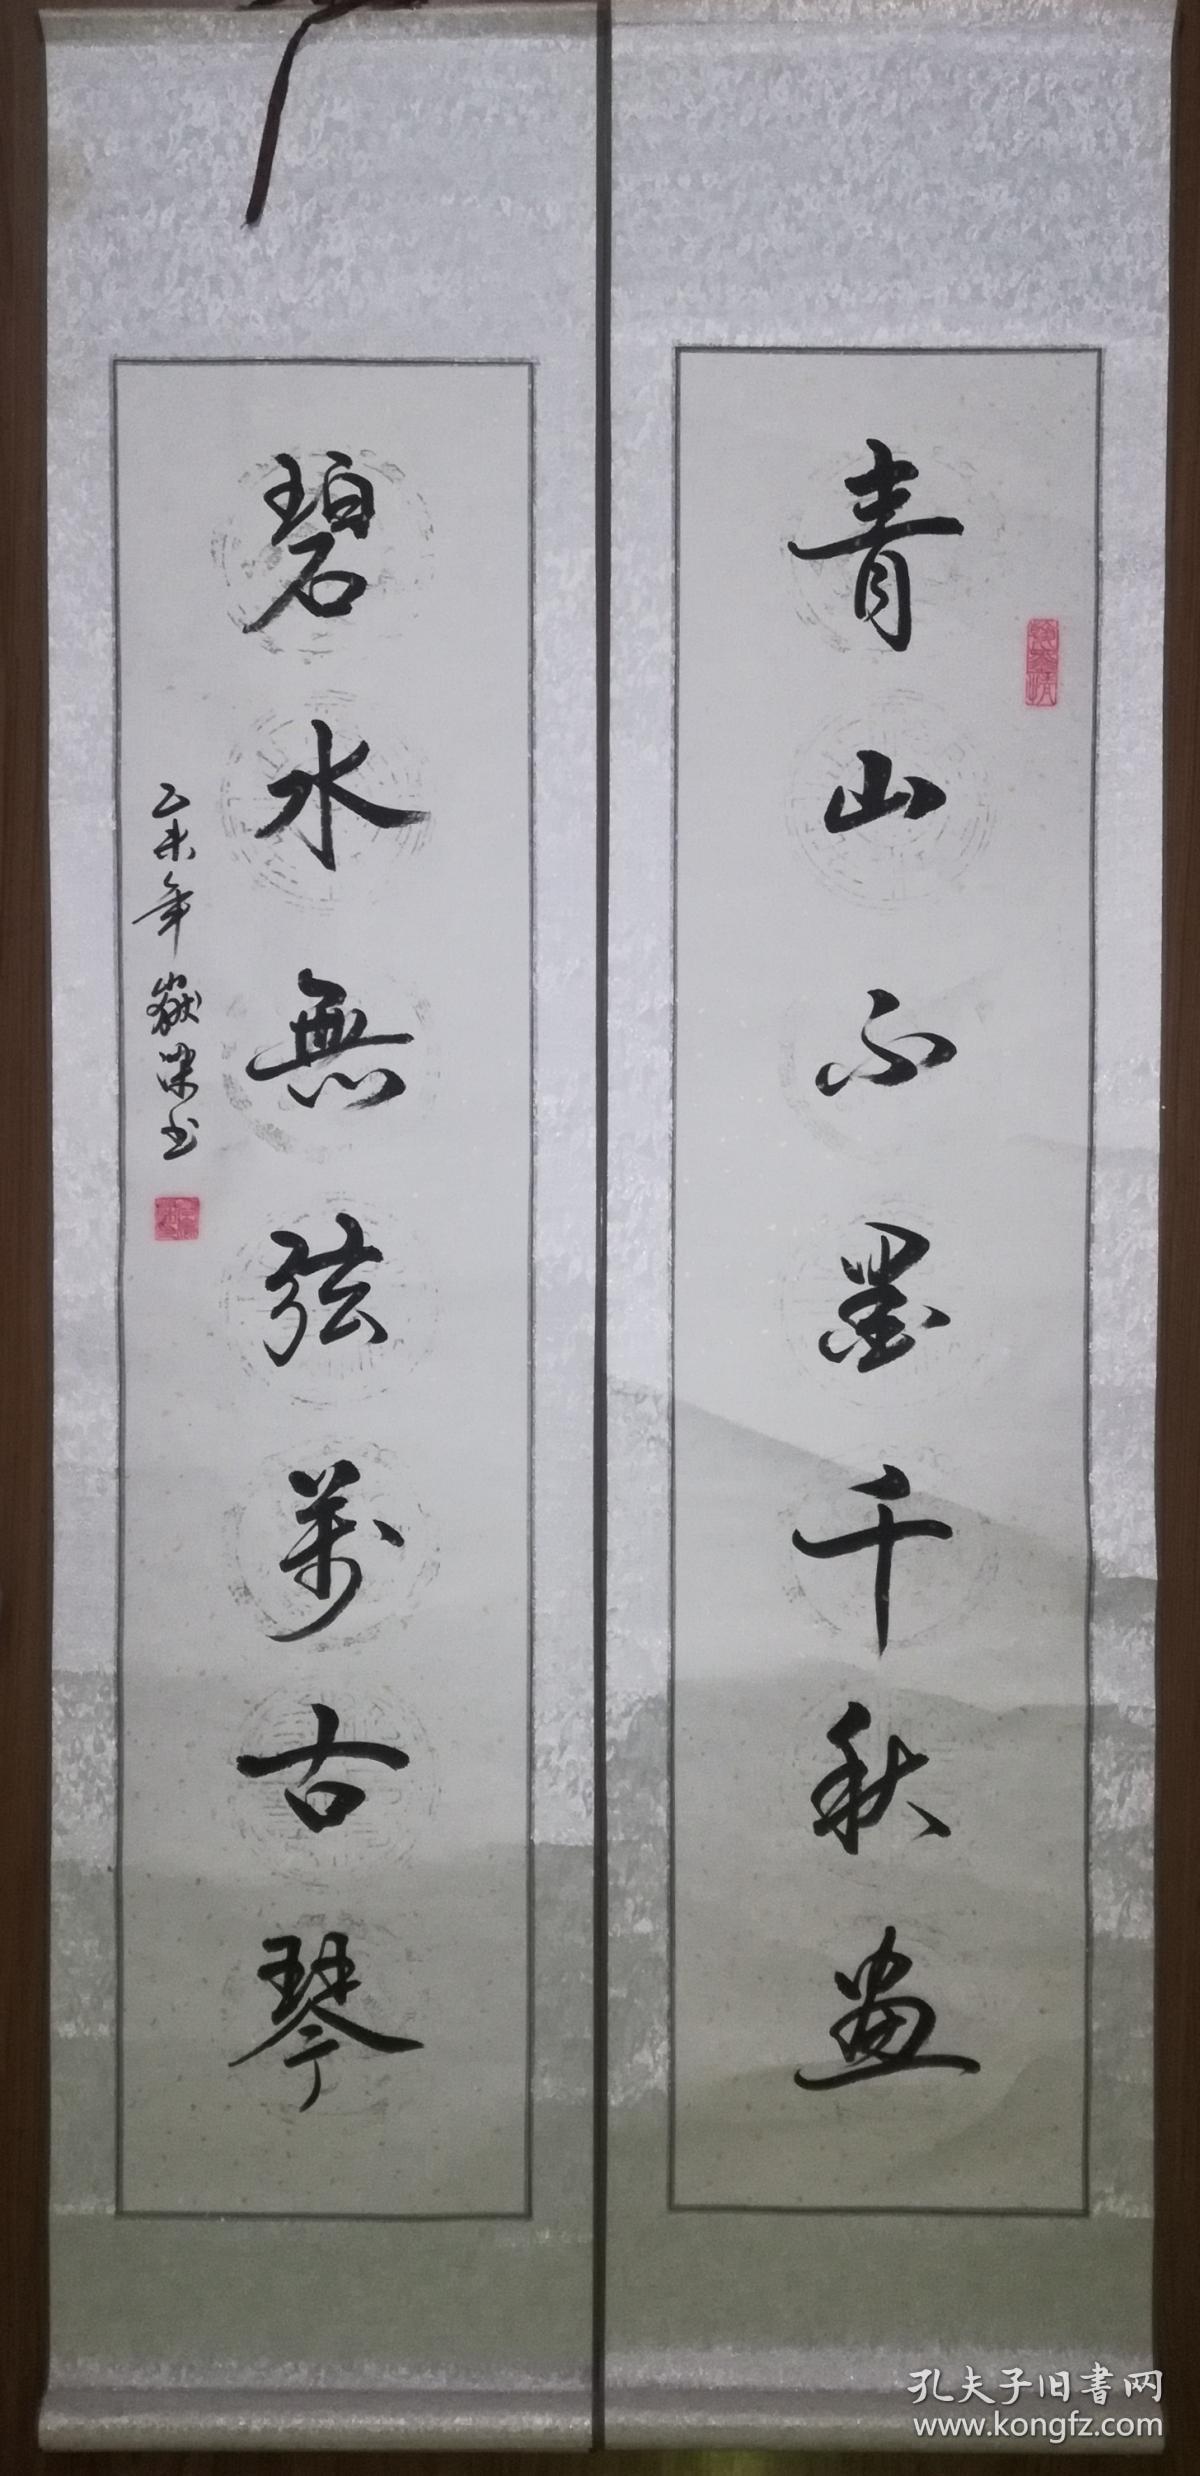 青山不墨千秋畫
碧水無弦萬古琴
乙未年嶽荣书
孔夫子旧書网
www.kongfz.com